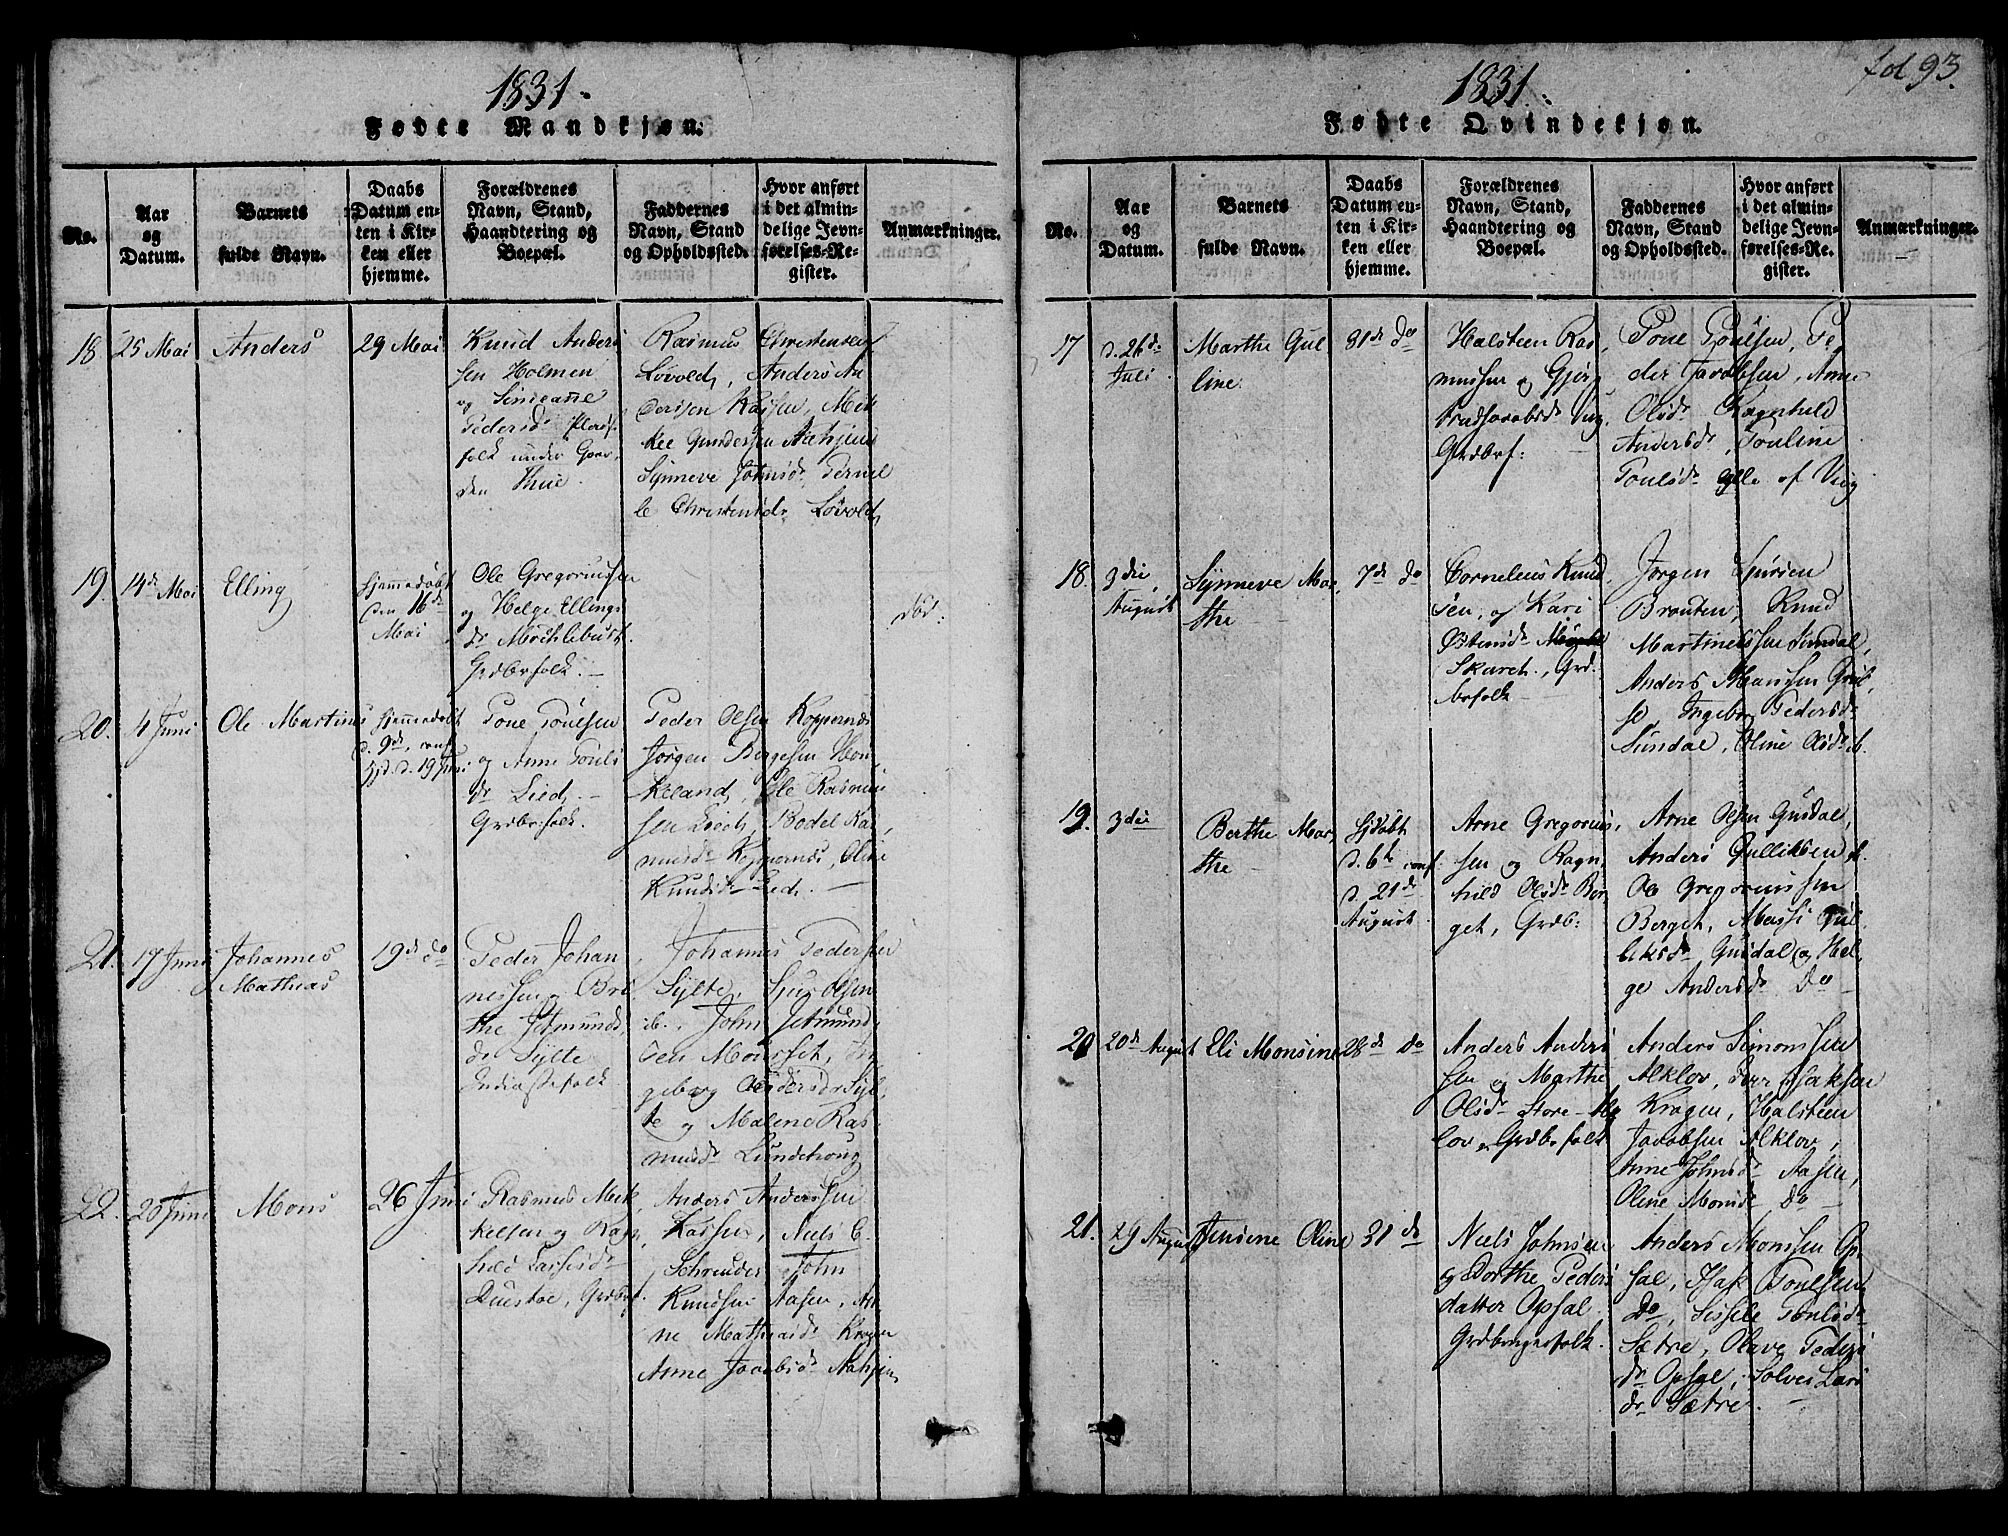 1831.
Fødte Mandkjøn.
No.
Aar
og
Datum.
Barnets
fulde Navn.
Daabs
Datum en-
ten i Kir-
ken eller
hjemme.
Forældrenes
Navn, Stand,
Haandtering og
Boepæl.
Faddernes
Navn, Stand
og Opholdssted.
Hvor anført
i det almin-
delige Jevn-
førelses-Re-
gister.
Anmærkninger.
18
25 Mai
Anders
29 Mai
Knud Anders
sen Holmen
og
Pedersdr
folk under Gaar
den
Rasmus Christensen
Løvold, Anders An
dersen Kassen, Mik
kel Gundersen
Synneve Johnsdr Pernel
le Christensdr Løvold
19.
14de Mai
Elling
Hjemmedøbt
den 16de
Mai
Ole Gregoriussen
og Helge Ellings
dr Mochlebust
Grdbrfolk. –
død:
20.
4 Juni
Ole Martinus
hjemmedøbt
d. 9de, conf
d. 19 Juni
Pone Poulsen
og Anne Pouls
dr Lied, –
Grdbrfolk.
Peder Olsen Koppernæs
Jørgen Bergesen Hon
keland, Ole Rasmus
sen Lied, Bodel Ras
musdr Koppernæs, Oline
Knudsdr Lied. –
21.
17 Juni
Johannes
Mathias
19de do
Peder Johan
nessen og Bri
the Jetmunds
dr Sylte
Johannes Pedersen
Sylte, Sjur Olsen
ib., John Jetmund
sen Mourset, In
geborg Pedersdr Syl
te og Malene Ras
musdr Lundehoug
22.
20 Juni
Mons
26 Juni
Rasmus Mik
kelsen og Ragn
hild Larsesdr
Duestøe, Grdbrf.
Anders Andersen
Kassen, Niels C.
Schreuder John
Knudsen Aasen, An
ne Mathiasdr Kragen
Anne Jacobsdr Aahjem
1831.
fol 93.
Fødte Qvindekjøn.
No.
Aar
og
Datum.
Barnets
fulde Navn.
Daabs
Datum en-
ten i Kir-
ken eller
hjemme.
Forældrenes
Navn, Stand,
Haandtering og
Boepæl.
Faddernes
Navn, Stand
og Opholdssted.
Hvor anført
i det almin-
delige Jevn-
førelses-Re-
gister.
Anmærkninger.
17
d. 26de
Juli
Marthe Gul
line.
31de do
Halsteen Ras
mussen og Gjer
trud Jacobsdr Vig
Grdbrf:
Pone Poulsen, Pe
der Jacobsen, Anne
Olsdr Ragnhild
Andersdr, Pouline
Poulsdr alle af Viig
18.
3die
August
Synneve Mar
the
7de do
Cornelius Knud
sen, og Kari
Østensdr
Skaret, Grd
brfolk –
Jørgen
Brauten, Knud
Martinussen Sundal,
Anders Monsen
Ingebor Pedersdr
Sundal, Oline Olsdr ib.
19.
3die
Berthe Mar
the –
hjdøbt
d. 6te conf
d. 21de
August
Arne Gregorius
sen og Ragn
hild Olsdr Ber
get, Grdb:
Arne Olsen Gusdal,
Anders Gulliksen ib.
Ole Gregoriussen
Berget, Massi Gul
liksdr Gusdal og Hel
ge Andersdr Do
20
20de August
Eli Monsine
28de do
Anders Anders
sen og Marthe
Olsdr Store-Al
lov, Grdbrfolk
Anders Simonsen
Alklov, Iver Isaksen
Kragen, Halsteen
Jacobsen Alklov,
Anne Johnsdr Aasen,
Oline Monsdr Do –
21.
29 August
Jensine Oline
31 do
Niels Johnsen
og Dorthe Peders
datter Opsal.
Grdbrugerfolk.
Anders Monsen Op
sal, Isak Poulsen
Do, Sissele Poulsdr
Sætre, Olave Peders
dr Opsal, Solvei Lars
dr Sætre. –